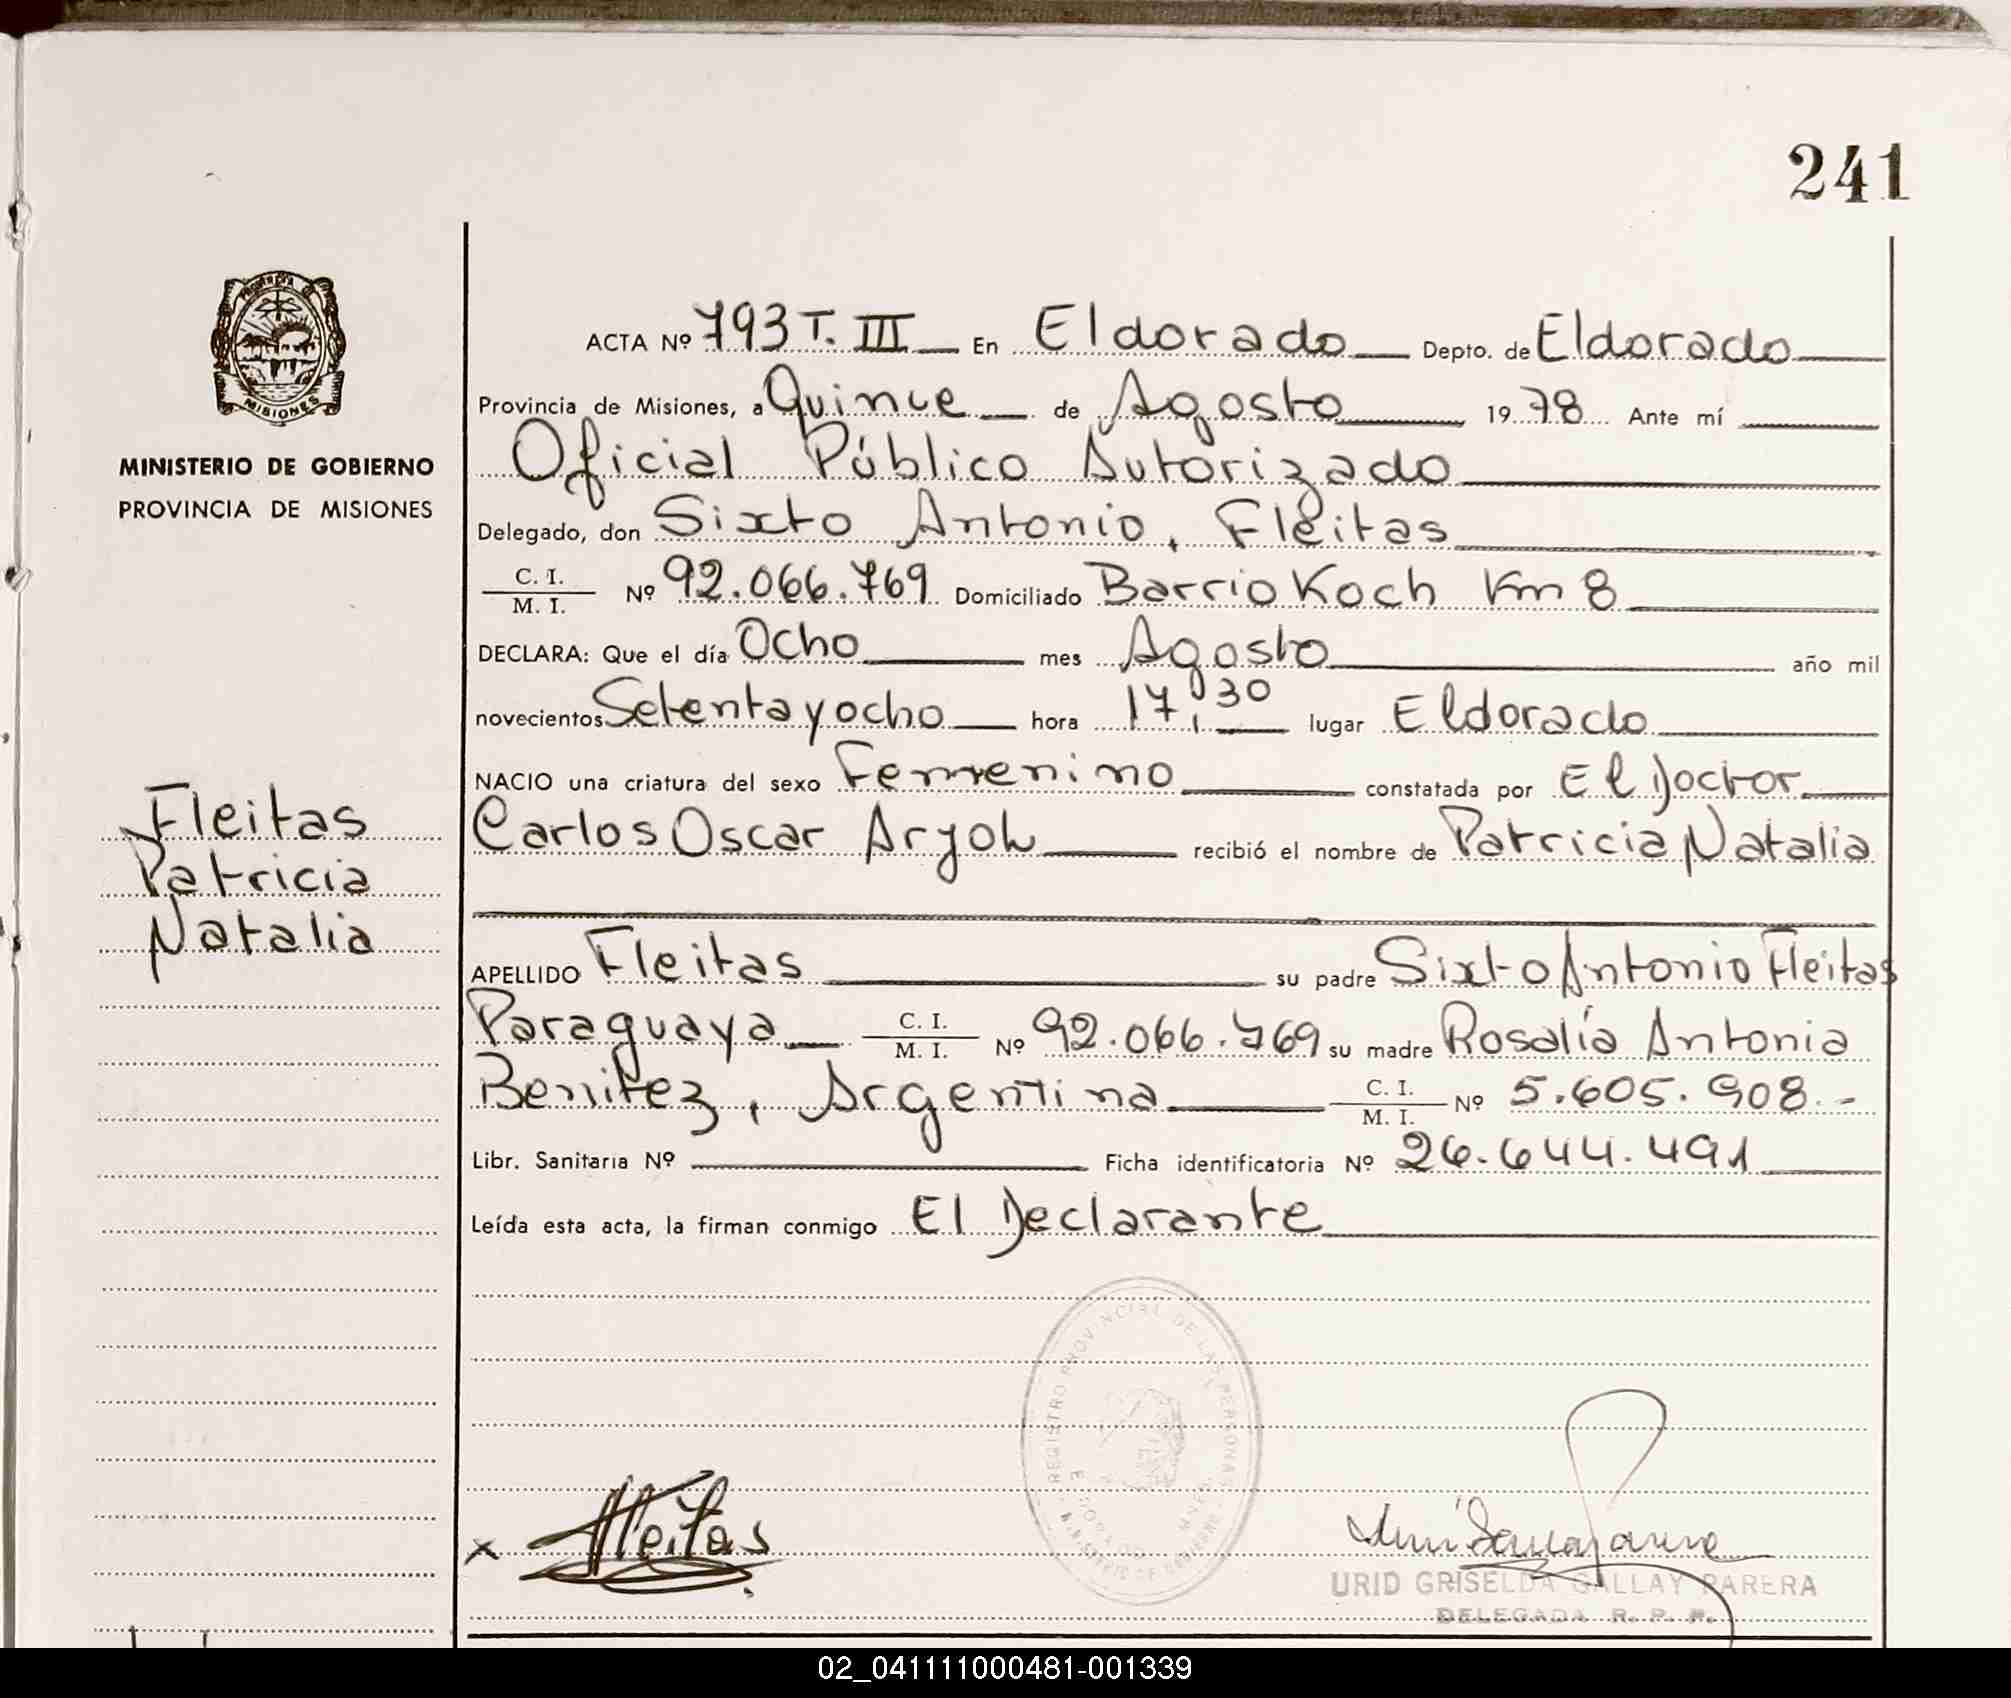 241
MISIONES
MINISTERIO DE GOBIERNO
PROVINCIA DE MISIONES
Fleitas
Patricia
Natalia
ACTA Nº 793 T. III En Eldorado Depto. de Eldorado
Provincia de Misiones, a Quince de Agosto 1978 Ante mí
Oficial Público Autorizado
Delegado, don Sixto Antonio, Fleitas
C. I. / M. I. Nº 92.066.769 Domiciliado Barrio Koch Km 8
DECLARA: Que el día Ocho mes Agosto año mil
novecientos Setenta y ocho hora 17,30 lugar Eldorado
NACIO una criatura del sexo Femenino constatada por El Doctor
Carlos Oscar recibió el nombre de Patricia Natalia
APELLIDO Fleitas su padre Sixto Antonio Fleitas
Paraguaya C. I. / M. I. Nº 92.066.769 su madre Rosalía Antonia
Benitez, Argentina C. I. / M. I. Nº 5.605.908.-
Libr. Sanitaria Nº Ficha identificatoria Nº 26.644.491
Leída esta acta, la firman conmigo El Declarante
REGISTRO PROVINCIAL DE LAS PERSONAS
x Fleitas
URID GRISELDA GALLAY PARERA
DELEGADA R. P. P.
02_041111000481-001339